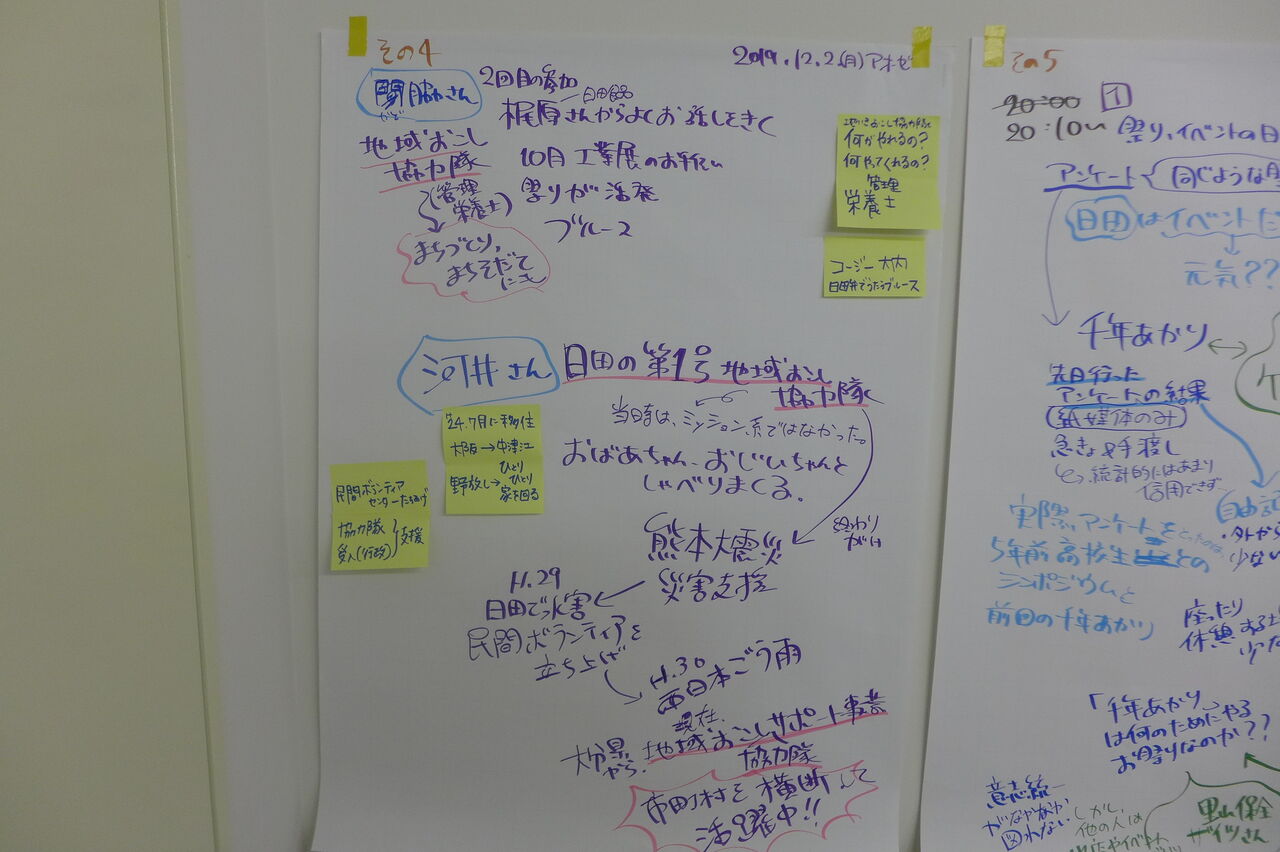 その4
2019.12.2(月)アオーゼ
関脇さん
2回目の参加
日田食品
梶原さんからよくお話しをきく
地域おこし
協力隊
(管理
栄養士)
10月 工業展のお手伝い
祭りが活発
ブルース
まちづくり,
まちそだて
にも
何がやれるの?
何やってくれるの?
管理
栄養士
コージー大内
日田弁でうたうブルース
河井さん
日田の第1号 地域おこし
協力隊
当時は、ミッション系ではなかった。
おばあちゃん、おじいちゃんと
しゃべりまくる。
24.7月に移住
大阪→中津江
野放し→ひとり
ひとり
家を回る
民間ボランティア
センターたちあげ
協力隊
受入(行政)
支援
熊本大震災
災害支援
H.29
日田で水害
民間ボランティアを
立ち上げ
H.30
西日本ごう雨
現在、
大分県
から、
地域おこしサポート事業
協力隊
市町村を横断して
活躍中!!
その5
20:00
1
20:10〜
祭り、イベントの日
アンケート
同じような
日田はイベントだ
元気??
千年あかり
先日行った
アンケートの結果
(紙媒体のみ)
急きょ手渡し
統計的にはあまり
信用できず
実際、アンケートを
とったのは、
5年前高校生との
シンポジウムと
前回の千年あかり
・外から
少ない
座ったり
休憩する
「千年あかり」
は何のためにやる
お祭りなのか??
意志統一
がなかなか
図れない
しかし、
他の人は
里山保全